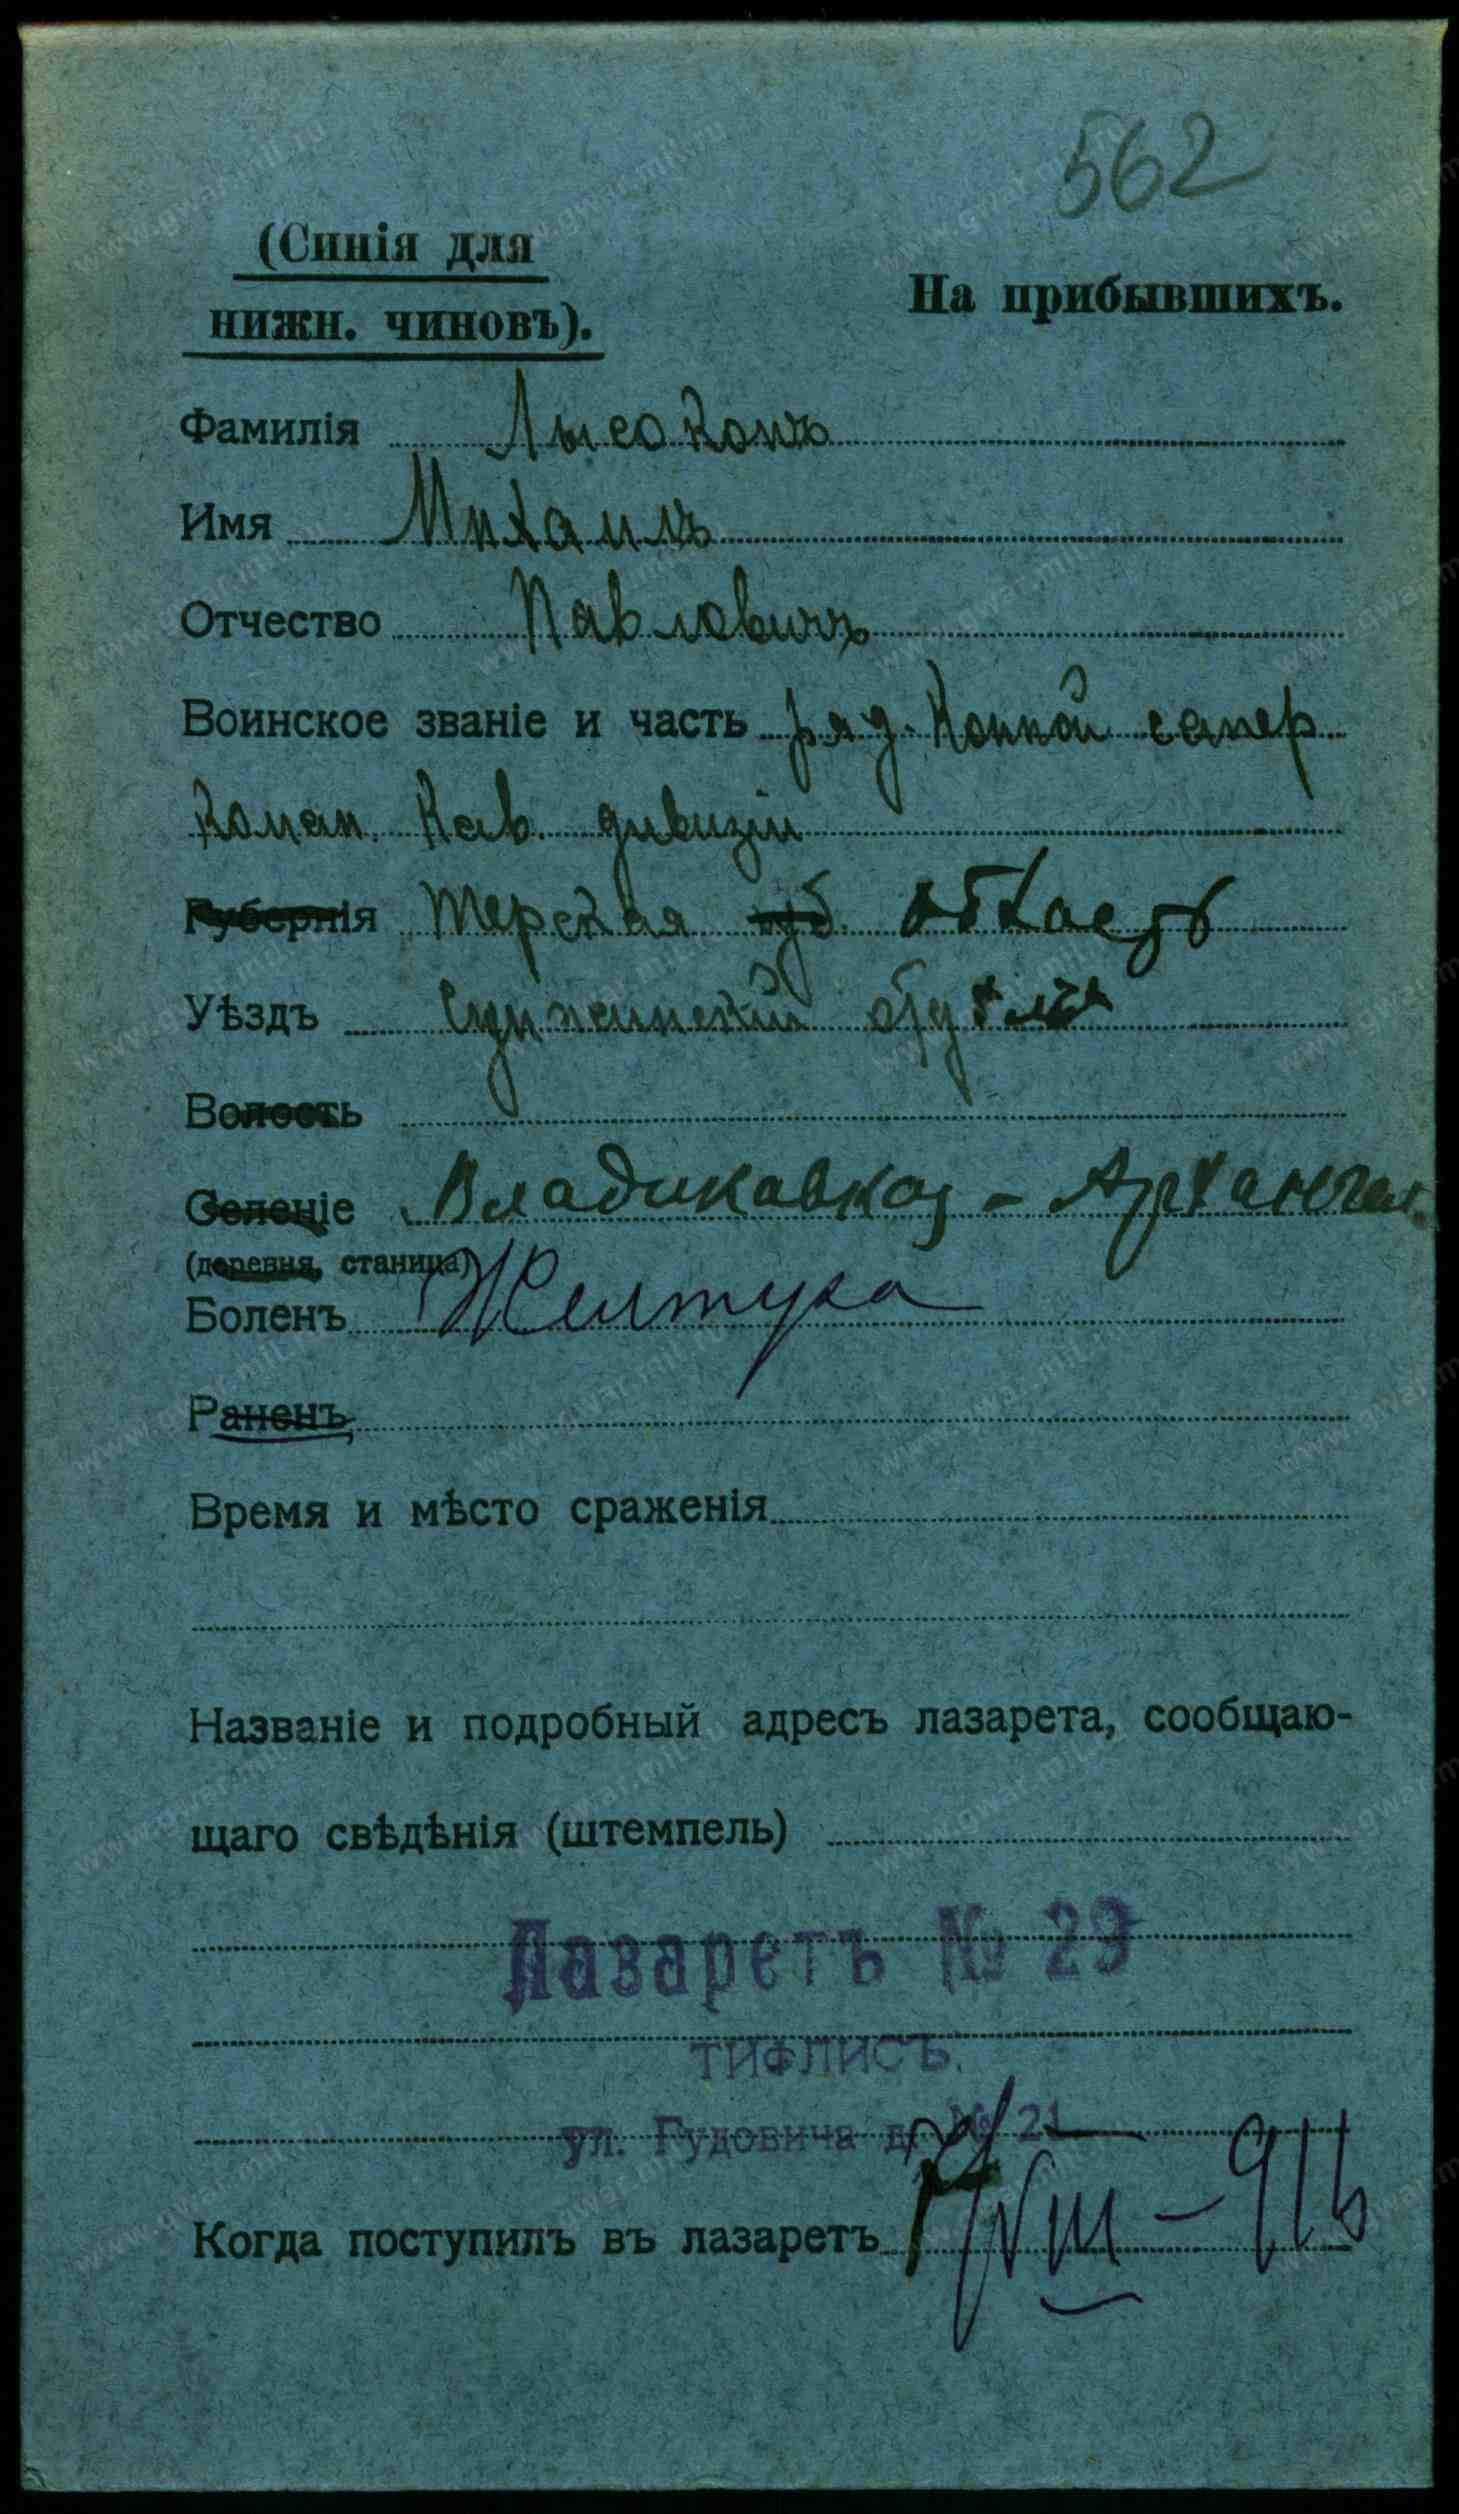 562
(Синія для
нижн. чиновъ).
На прибывшихъ.
Фамилія Лысоконь
Имя Михаилъ
Отчество Павловичъ
Воинское званіе и часть ряд. Конной сапер
Коман. Кав. дивизіи
Губернія Терская губ. область
Уѣздъ Сунженскій отдѣлъ
Волость
Селеніе Владикавказ - Архангел.
(деревня, станица)
Боленъ Желтуха
Раненъ
Время и мѣсто сраженія
Названіе и подробный адресъ лазарета, сообщаю-
щаго свѣдѣнія (штемпель)
Лазаретъ № 29
ТИФЛИСЪ.
ул. Гудовича д. № 21
Когда поступилъ въ лазаретъ VIII - 916